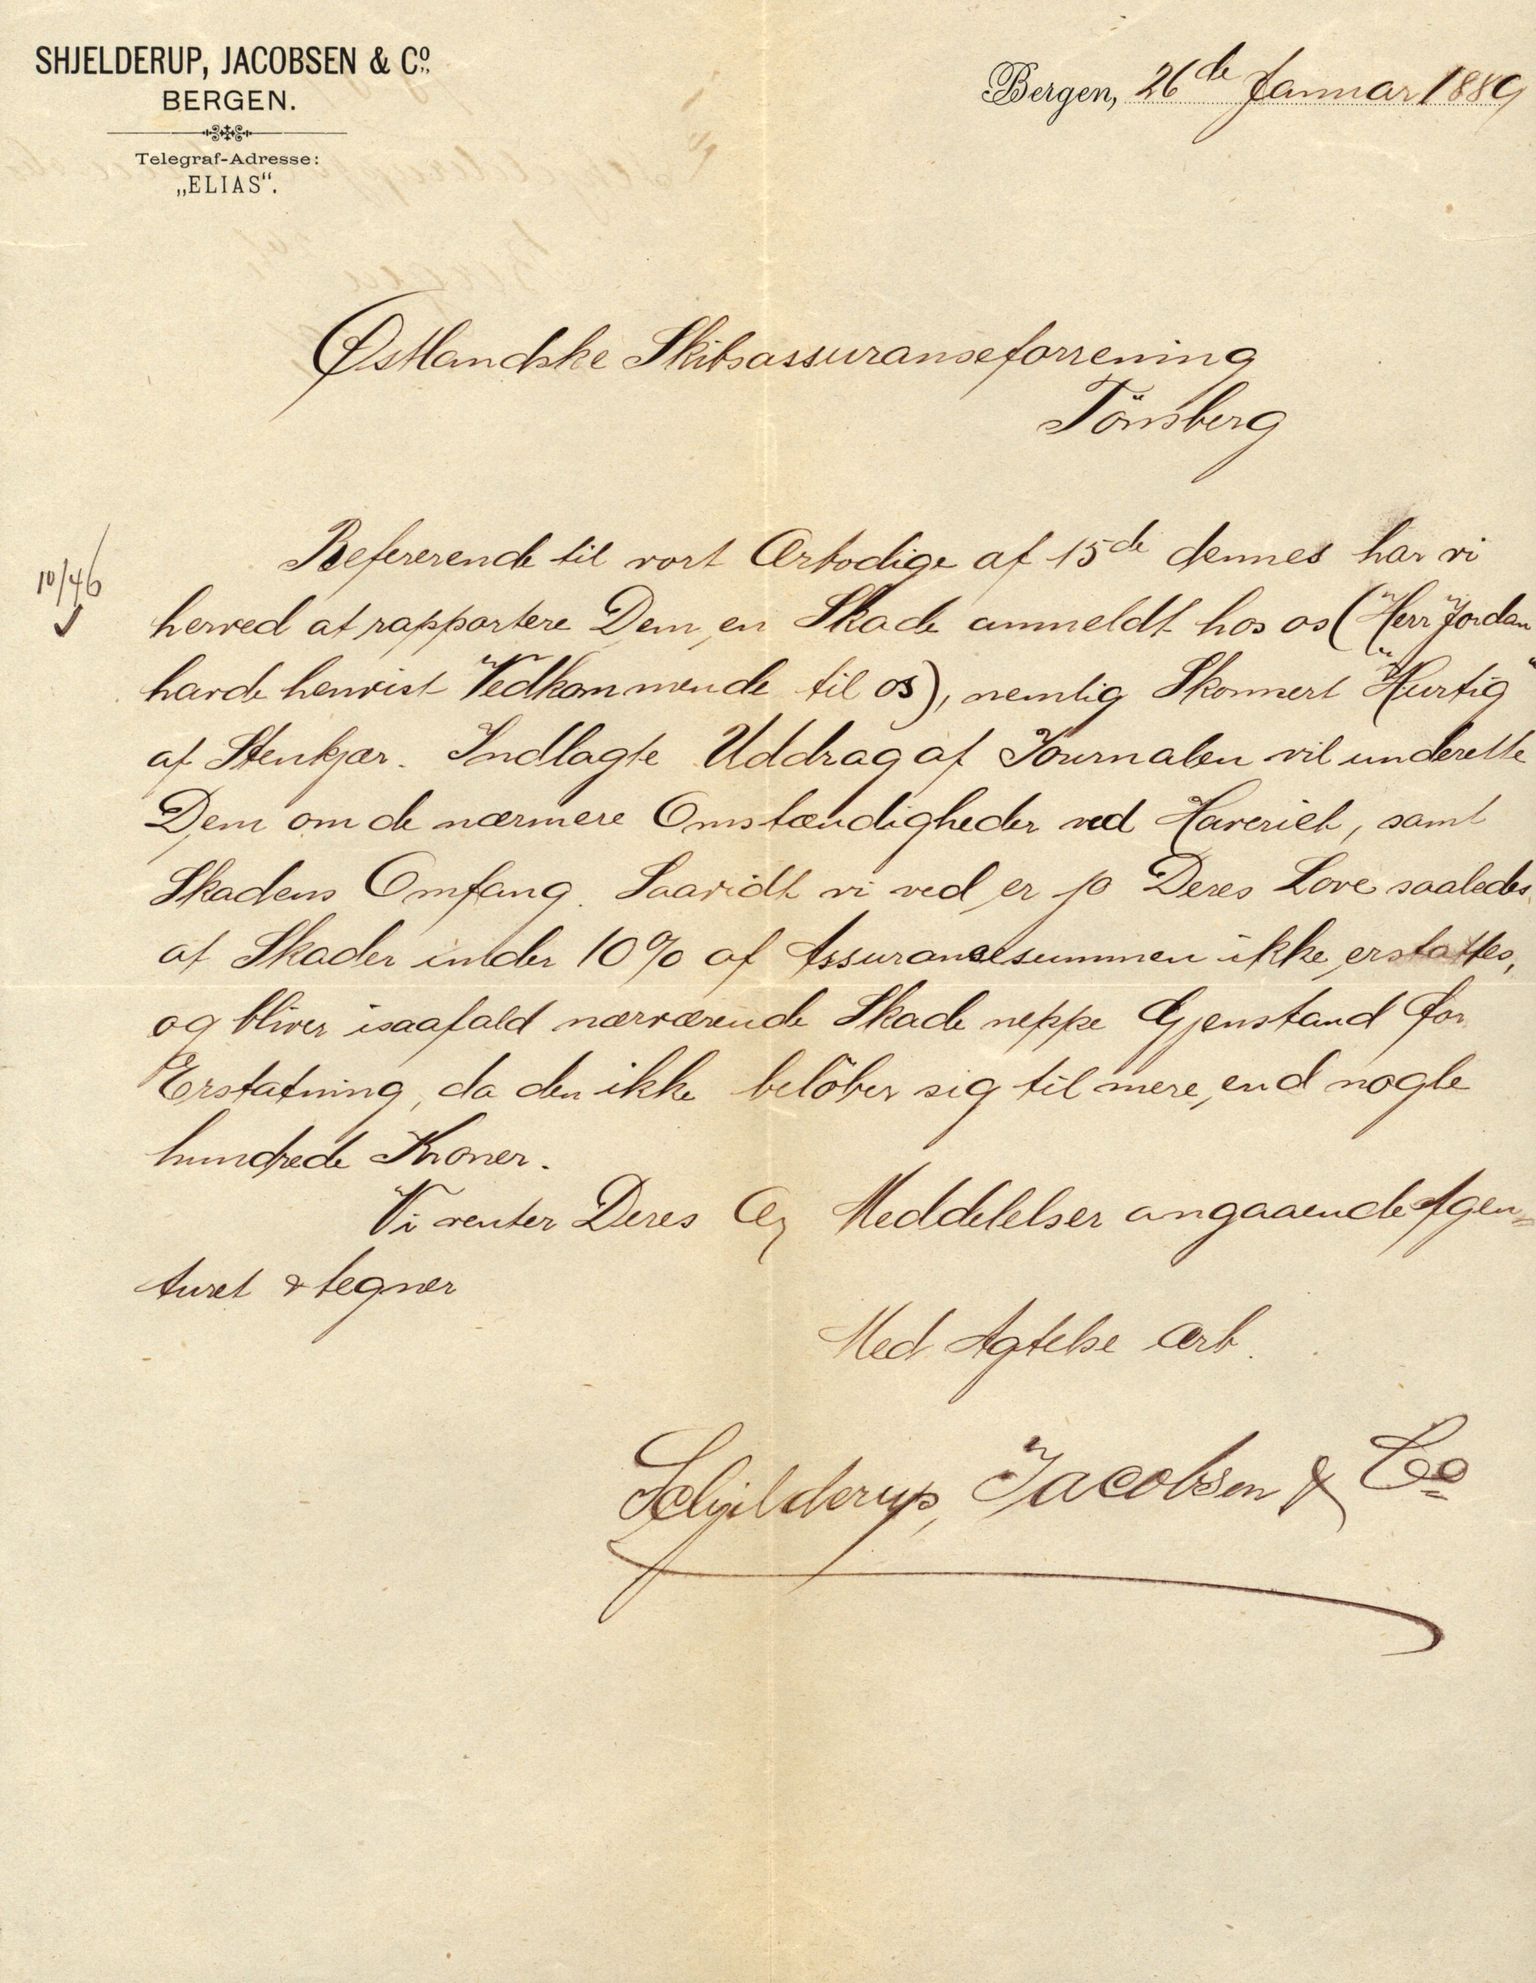 SHJELDERUP, JACOBSEN & Co.,
BERGEN.
Telegraf-Adresse:
„ELIAS“.
Bergen, 26de Januar 1889
Østlandske Skibsassuranseforrening
Tönsberg
10/46
Refererende til vort Ærbodige af 15de dennes har vi
herved at rapportere Dem, en Skade anmeldt hos os (Herr Jordan
havde henvist Vedkommende til os), nemlig Skonnert "Hurtig"
af Stenkjær. Indlagte Uddrag af Journalen vil underette
Dem om de nærmere Omstændigheder ved Haveriet, samt
Skadens Omfang. Saavidt vi ved, er jo Deres Love saaledes,
at Skader under 10% af Assurancesummen ikke, erstattes,
og bliver isaafald nærværende Skade neppe Gjenstand for
Erstatning, da den ikke belöber sig til mere, end nogle
hundrede Kroner.
Vi venter Deres Æ Meddelelser angaaende Agen=
turet & tegner
Med Agtelse ærb.
Schjelderup, Jacobsen & Co